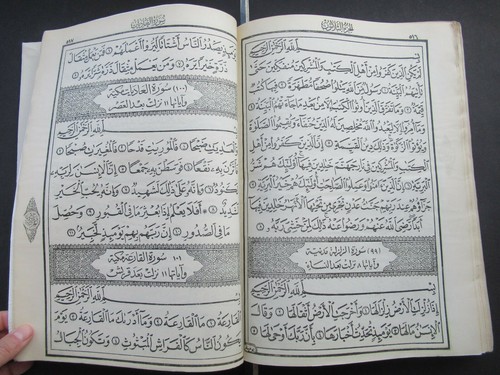 الجزء الثلاثون
٥٦٦
بِسْمِ اللَّهِ الرَّحْمَٰنِ الرَّحِيمِ
لَمْ يَكُنِ الَّذِينَ كَفَرُوا مِنْ أَهْلِ الْكِتَٰبِ وَالْمُشْرِكِينَ مُنفَكِّينَ حَتَّىٰ
تَأْتِيَهُمُ الْبَيِّنَةُ ① رَسُولٌ مِّنَ اللَّهِ يَتْلُوا صُحُفًا مُّطَهَّرَةً ② فِيهَا
كُتُبٌ قَيِّمَةٌ ③ وَمَا تَفَرَّقَ الَّذِينَ أُوتُوا الْكِتَٰبَ إِلَّا مِن بَعْدِ مَا جَاءَتْهُمُ الْبَيِّنَةُ ④
وَمَا أُمِرُوا إِلَّا لِيَعْبُدُوا اللَّهَ مُخْلِصِينَ لَهُ الدِّينَ حُنَفَاءَ وَيُقِيمُوا الصَّلَوٰةَ
وَيُؤْتُوا الزَّكَوٰةَ وَذَٰلِكَ دِينُ الْقَيِّمَةِ ⑤ إِنَّ الَّذِينَ كَفَرُوا مِنْ أَهْلِ
الْكِتَٰبِ وَالْمُشْرِكِينَ فِي نَارِ جَهَنَّمَ خَٰلِدِينَ فِيهَا أُولَٰئِكَ هُمْ شَرُّ
الْبَرِيَّةِ ⑥ إِنَّ الَّذِينَ ءَامَنُوا وَعَمِلُوا الصَّٰلِحَٰتِ أُولَٰئِكَ هُمْ خَيْرُ الْبَرِيَّةِ ⑦
جَزَاؤُهُمْ عِندَ رَبِّهِمْ جَنَّٰتُ عَدْنٍ تَجْرِي مِن تَحْتِهَا الْأَنْهَٰرُ خَٰلِدِينَ فِيهَا
أَبَدًا رَّضِيَ اللَّهُ عَنْهُمْ وَرَضُوا عَنْهُ ذَٰلِكَ لِمَنْ خَشِيَ رَبَّهُ ⑧
(٩٩) سورة الزلزلة مدنية
وآياتها ٨ نزلت بعد النساء
بِسْمِ اللَّهِ الرَّحْمَٰنِ الرَّحِيمِ
إِذَا زُلْزِلَتِ الْأَرْضُ زِلْزَالَهَا ① وَأَخْرَجَتِ الْأَرْضُ أَثْقَالَهَا ② وَقَالَ
الْإِنسَٰنُ مَا لَهَا ③ يَوْمَئِذٍ تُحَدِّثُ أَخْبَارَهَا ④ بِأَنَّ رَبَّكَ أَوْحَىٰ لَهَا ⑤
يَوْمَئِذٍ يَصْدُرُ النَّاسُ أَشْتَاتًا لِّيُرَوْا أَعْمَٰلَهُمْ ⑥ فَمَن يَعْمَلْ مِثْقَالَ
ذَرَّةٍ خَيْرًا يَرَهُ ⑦ وَمَن يَعْمَلْ مِثْقَالَ ذَرَّةٍ شَرًّا يَرَهُ ⑧
(١٠٠) سورة العاديات مكية
وآياتها ١١ نزلت بعد العصر
بِسْمِ اللَّهِ الرَّحْمَٰنِ الرَّحِيمِ
وَالْعَٰدِيَٰتِ ضَبْحًا ① فَالْمُورِيَٰتِ قَدْحًا ② فَالْمُغِيرَٰتِ صُبْحًا ③
فَأَثَرْنَ بِهِ نَقْعًا ④ فَوَسَطْنَ بِهِ جَمْعًا ⑤ إِنَّ الْإِنسَٰنَ لِرَبِّهِ
لَكَنُودٌ ⑥ وَإِنَّهُ عَلَىٰ ذَٰلِكَ لَشَهِيدٌ ⑦ وَإِنَّهُ لِحُبِّ الْخَيْرِ
لَشَدِيدٌ ⑧ أَفَلَا يَعْلَمُ إِذَا بُعْثِرَ مَا فِي الْقُبُورِ ⑨ وَحُصِّلَ
مَا فِي الصُّدُورِ ⑩ إِنَّ رَبَّهُم بِهِمْ يَوْمَئِذٍ لَّخَبِيرٌ ⑪
(١٠١) سورة القارعة مكية
وآياتها ١١ نزلت بعد قريش
بِسْمِ اللَّهِ الرَّحْمَٰنِ الرَّحِيمِ
الْقَارِعَةُ ① مَا الْقَارِعَةُ ② وَمَا أَدْرَىٰكَ مَا الْقَارِعَةُ ③ يَوْمَ
يَكُونُ النَّاسُ كَالْفَرَاشِ الْمَبْثُوثِ ④ وَتَكُونُ الْجِبَالُ